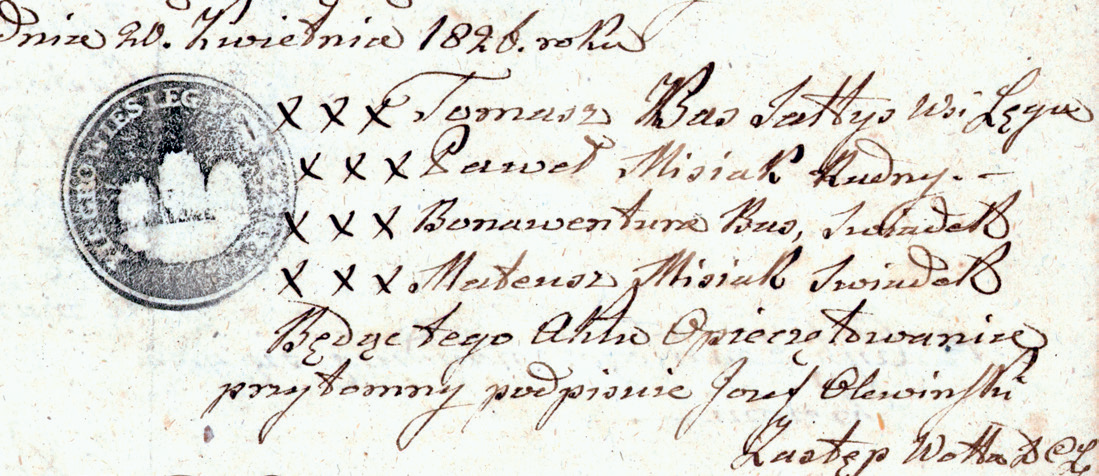 dnia 20. Kwietnia 1826. roku
X X X Tomasz Bas Sołtys Wsi Łęgu
X X X Paweł Misiak Radny. –
X X X Bonawentura Bas, Swiadek
X X X Mateusz Misiak Swiadek
Będąc tego Aktu Opieczętowania
przytomny podpisuie Jozef Olewinski
Zastęp Woÿta
WIES LEG